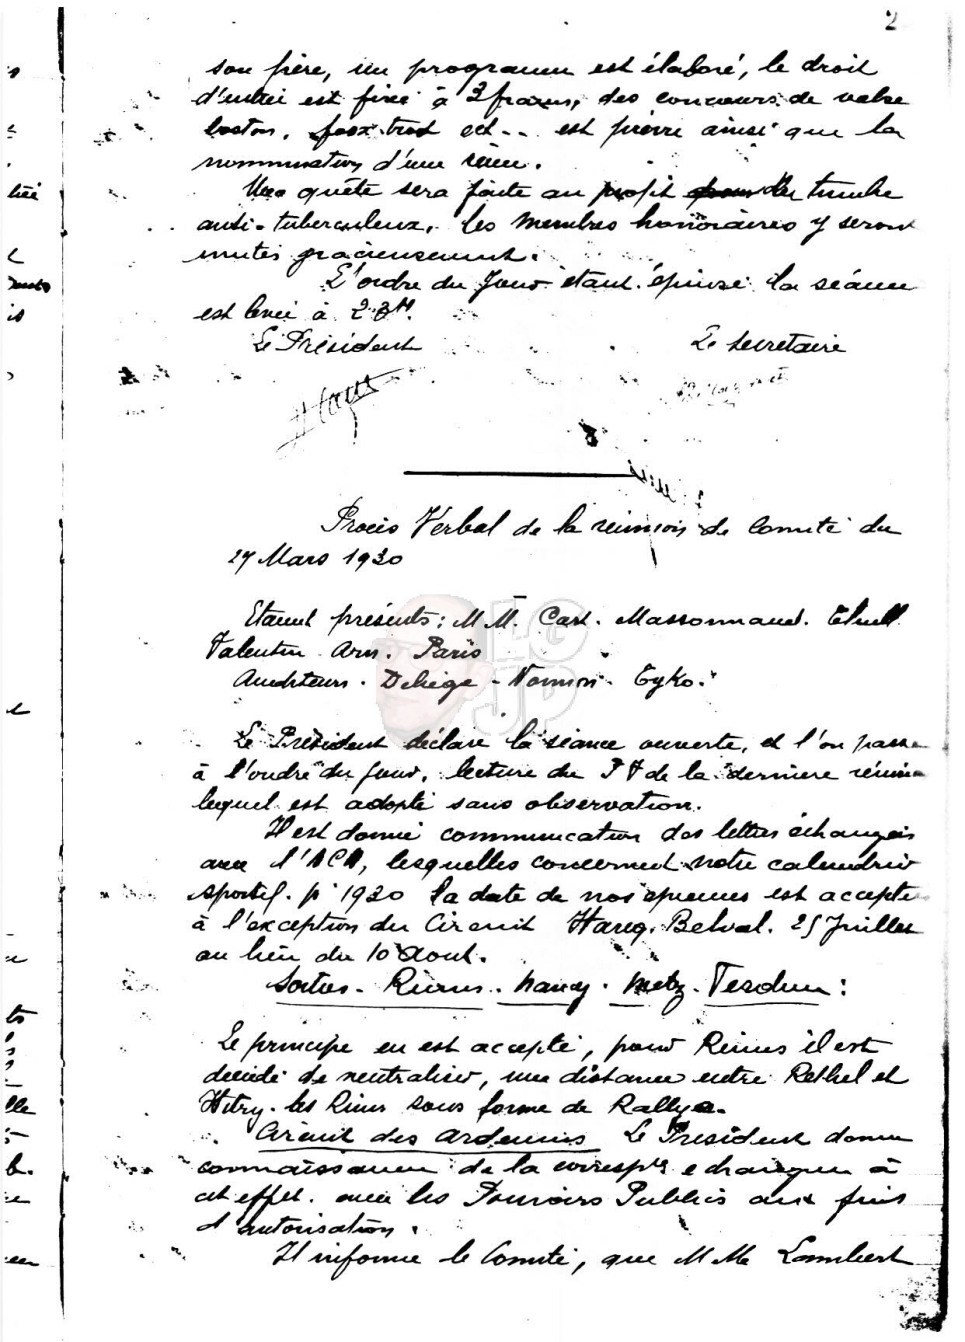 2
son frère, un programm est élaboré, le droit
d'entrée est fixé à 3 francs, des concours de valse
boston, fox-trot ect-- est prévu ainsi que la
nommination d'une reine.
Une quête sera faite au profit du timbre
anti-tuberculeux, les membres honoraires y seront
invités gracieusement.
L'ordre du Jour étant épuisé la séance
est levée à 23H.
Le Président Le Secretaire
Procès Verbal de la réunion de Comité du
27 Mars 1930
Etaient présents: M M. Card. Massonnaud.
Valentin Arn. Paris
Auditeurs. Deliège - Nonnon. Tyko.
Le Président déclare la séance ouverte, et l'on passe
à l'ordre du jour, lecture du P V de la derniere réunion
lequel est adopté sans observation.
Il est donné communication des lettres échangées
avec l'ACA, lesquelles concernent notre calendrier
sportif. pr 1930 la date de nos épreuves est acceptée
à l'exception du Circuit Harcy. Belval. 25 Juillet
au lieu du 10 Aout.
Sorties. Reims. Nancy. Metz. Verdun:
Le principe en est accepté, pour Reims il est
décidé de neutraliser, une distance entre Rethel et
Witry-les Reims sous forme de Rallye.
Circuit des Ardennes Le President donne
connaissance de la correspce echangée à
cet effet. avec les Pouvoirs Publics aux fins
d'autorisation.
Il informe le Comité, que M M Lambert